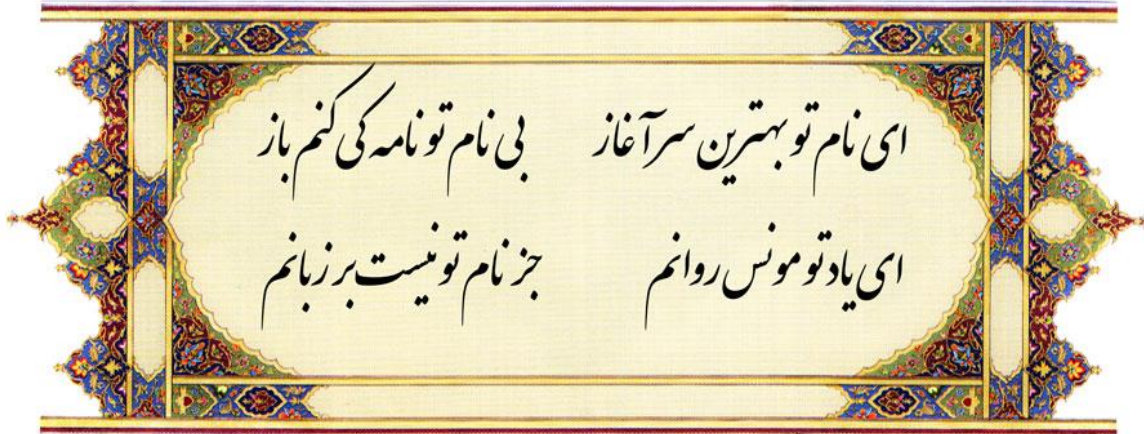 ای نام تو بهترین سرآغاز بی نام تو نامه کی کنم باز
ای یاد تو مونس روانم جز نام تو نیست بر زبانم